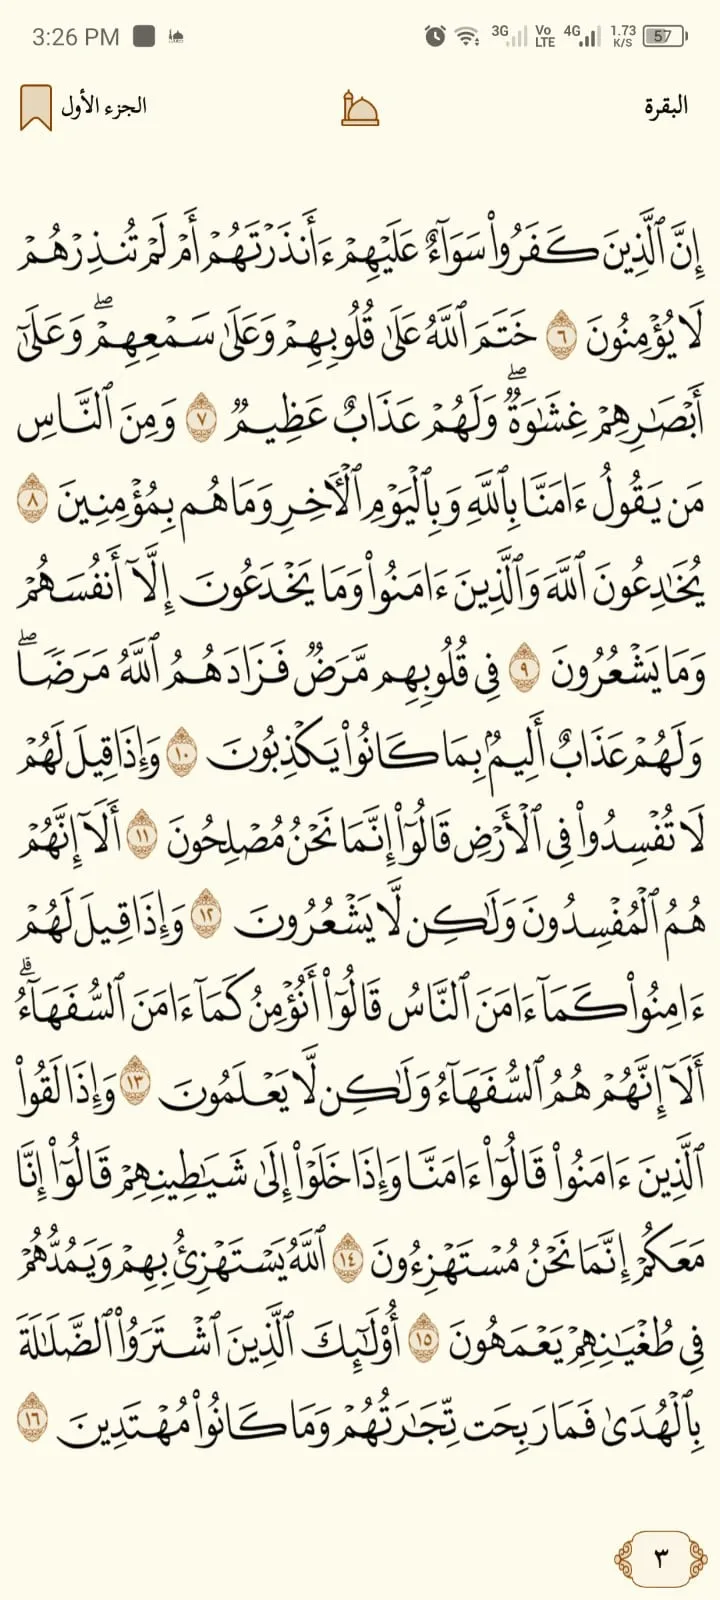 3:26 PM 3G Vo LTE 4G 1.73 K/S 57
البقرة الجزء الأول
إِنَّ ٱلَّذِينَ كَفَرُوا۟ سَوَآءٌ عَلَيْهِمْ ءَأَنذَرْتَهُمْ أَمْ لَمْ تُنذِرْهُمْ
لَا يُؤْمِنُونَ ٦ خَتَمَ ٱللَّهُ عَلَىٰ قُلُوبِهِمْ وَعَلَىٰ سَمْعِهِمْ ۖ وَعَلَىٰٓ
أَبْصَٰرِهِمْ غِشَٰوَةٌ ۖ وَلَهُمْ عَذَابٌ عَظِيمٌ ٧ وَمِنَ ٱلنَّاسِ
مَن يَقُولُ ءَامَنَّا بِٱللَّهِ وَبِٱلْيَوْمِ ٱلْـَٔاخِرِ وَمَا هُم بِمُؤْمِنِينَ ٨
يُخَٰدِعُونَ ٱللَّهَ وَٱلَّذِينَ ءَامَنُوا۟ وَمَا يَخْدَعُونَ إِلَّآ أَنفُسَهُمْ
وَمَا يَشْعُرُونَ ٩ فِى قُلُوبِهِم مَّرَضٌ فَزَادَهُمُ ٱللَّهُ مَرَضًا ۖ
وَلَهُمْ عَذَابٌ أَلِيمٌۢ بِمَا كَانُوا۟ يَكْذِبُونَ ١٠ وَإِذَا قِيلَ لَهُمْ
لَا تُفْسِدُوا۟ فِى ٱلْأَرْضِ قَالُوٓا۟ إِنَّمَا نَحْنُ مُصْلِحُونَ ١١ أَلَآ إِنَّهُمْ
هُمُ ٱلْمُفْسِدُونَ وَلَٰكِن لَّا يَشْعُرُونَ ١٢ وَإِذَا قِيلَ لَهُمْ
ءَامِنُوا۟ كَمَآ ءَامَنَ ٱلنَّاسُ قَالُوٓا۟ أَنُؤْمِنُ كَمَآ ءَامَنَ ٱلسُّفَهَآءُ ۗ
أَلَآ إِنَّهُمْ هُمُ ٱلسُّفَهَآءُ وَلَٰكِن لَّا يَعْلَمُونَ ١٣ وَإِذَا لَقُوا۟
ٱلَّذِينَ ءَامَنُوا۟ قَالُوٓا۟ ءَامَنَّا وَإِذَا خَلَوْا۟ إِلَىٰ شَيَٰطِينِهِمْ قَالُوٓا۟ إِنَّا
مَعَكُمْ إِنَّمَا نَحْنُ مُسْتَهْزِءُونَ ١٤ ٱللَّهُ يَسْتَهْزِئُ بِهِمْ وَيَمُدُّهُمْ
فِى طُغْيَٰنِهِمْ يَعْمَهُونَ ١٥ أُو۟لَٰٓئِكَ ٱلَّذِينَ ٱشْتَرَوُا۟ ٱلضَّلَٰلَةَ
بِٱلْهُدَىٰ فَمَا رَبِحَت تِّجَٰرَتُهُمْ وَمَا كَانُوا۟ مُهْتَدِينَ ١٦
٣